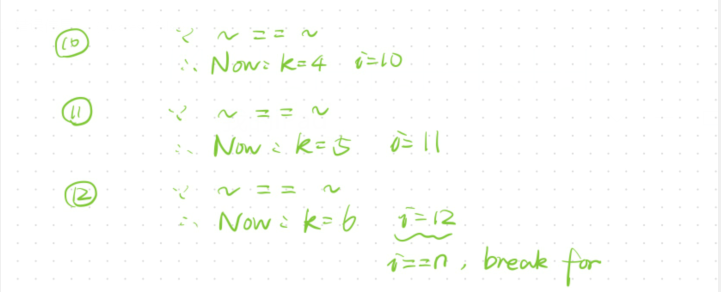 ⑩ ∵ ~ == ~
∴ Now: k=4 i=10
⑪ ∵ ~ == ~
∴ Now: k=5 i=11
⑫ ∵ ~ == ~
∴ Now: k=6 i=12
i==n, break for